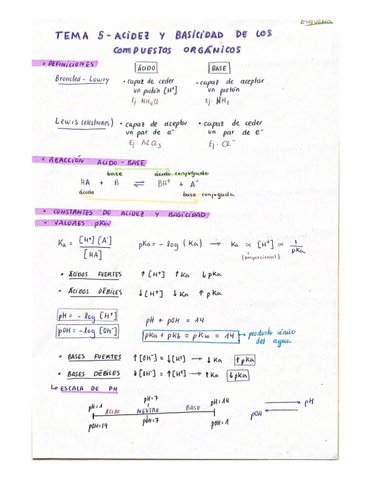 TEMA 5 - ACIDEZ Y BASICIDAD DE LOS
COMPUESTOS ORGÁNICOS
• DEFINICIONES
ÁCIDO BASE
Bronsted - Lowry
• capaz de ceder • capaz de aceptar
un protón [H⁺] un protón [H⁺]
Ej. NH₄Cl Ej. NH₃
Lewis (electrones)
• capaz de aceptar • capaz de ceder
un par de e⁻ un par de e⁻
Ej. AlCl₃ Ej. Cl⁻
• REACCIÓN ÁCIDO - BASE
base ácido conjugado
HA + B ⇌ BH⁺ + A⁻
ácido base conjugada
• CONSTANTES DE ACIDEZ Y BASICIDAD
• VALORES pKa
Ka = [H⁺][A⁻] / [HA] pKa = - log (Ka) → Ka ∝ [H⁺] ∝ 1/pKa
(proporcional)
• ÁCIDOS FUERTES ↑[H⁺] ↑Ka ↓pKa
• ÁCIDOS DÉBILES ↓[H⁺] ↓Ka ↑pKa
pH = - log [H⁺]
pOH = - log [OH⁻]
pH + pOH = 14
pKa + pKb = pKw = 14 → producto iónico
del agua
• BASES FUERTES ↑[OH⁻] = ↓[H⁺] → ↓Ka ↑pKa
• BASES DÉBILES ↓[OH⁻] = ↑[H⁺] → ↑Ka ↓pKa
↳ ESCALA DE PH
pH=1 pH=7 pH=14
ÁCIDO NEUTRO BASE
pOH=14 pH=7 pOH=1
pH
pOH